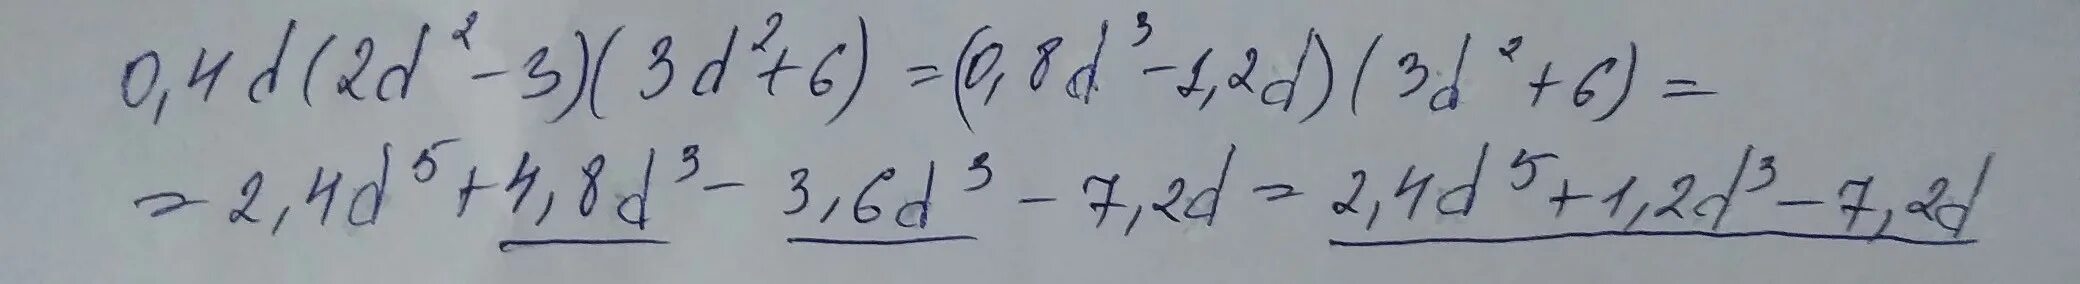 0,4d(2d²-3)(3d²+6)=(0,8d³-1,2d)(3d²+6)=
=2,4d⁵+4,8d³-3,6d³-7,2d=2,4d⁵+1,2d³-7,2d